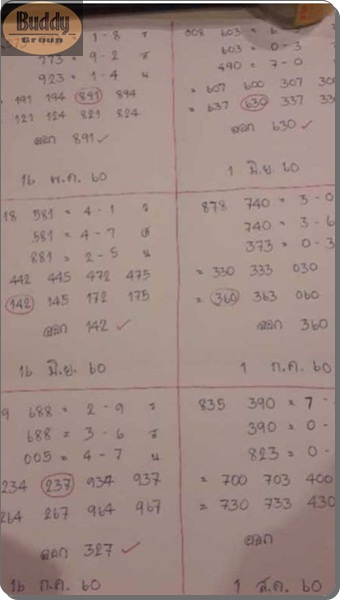 Buddy
Group
1 - 8 ร
773 = 9 - 2 ร
923 = 1 - 4 น
191 194 891 894
121 124 821 824
ออก 891 ✓
16 พ.ค. 60
603 =
603 = 0 - 3
490 = 7 - 0
= 607 600 307
= 637 630 337
ออก 630 ✓
1 มิ.ย. 60
18 581 = 4 - 1 ร
581 = 4 - 7
881 = 2 - 5 น
442 445 472 475
142 145 172 175
ออก 142 ✓
16 มิ.ย. 60
878 740 = 3 - 0
740 = 3 - 6
373 = 0 - 3
= 330 333 030
= 360 363 060
ออก 360
1 ก.ค. 60
9 688 = 2 - 9 ร
688 = 3 - 6 ร
005 = 4 - 7 น
234 237 934 937
264 267 964 967
ออก 327 ✓
16 ก.ค. 60
835 390 = 7 -
390 = 0 -
823 = 0 -
= 700 703 400
= 730 733 430
ออก
1 ส.ค. 60